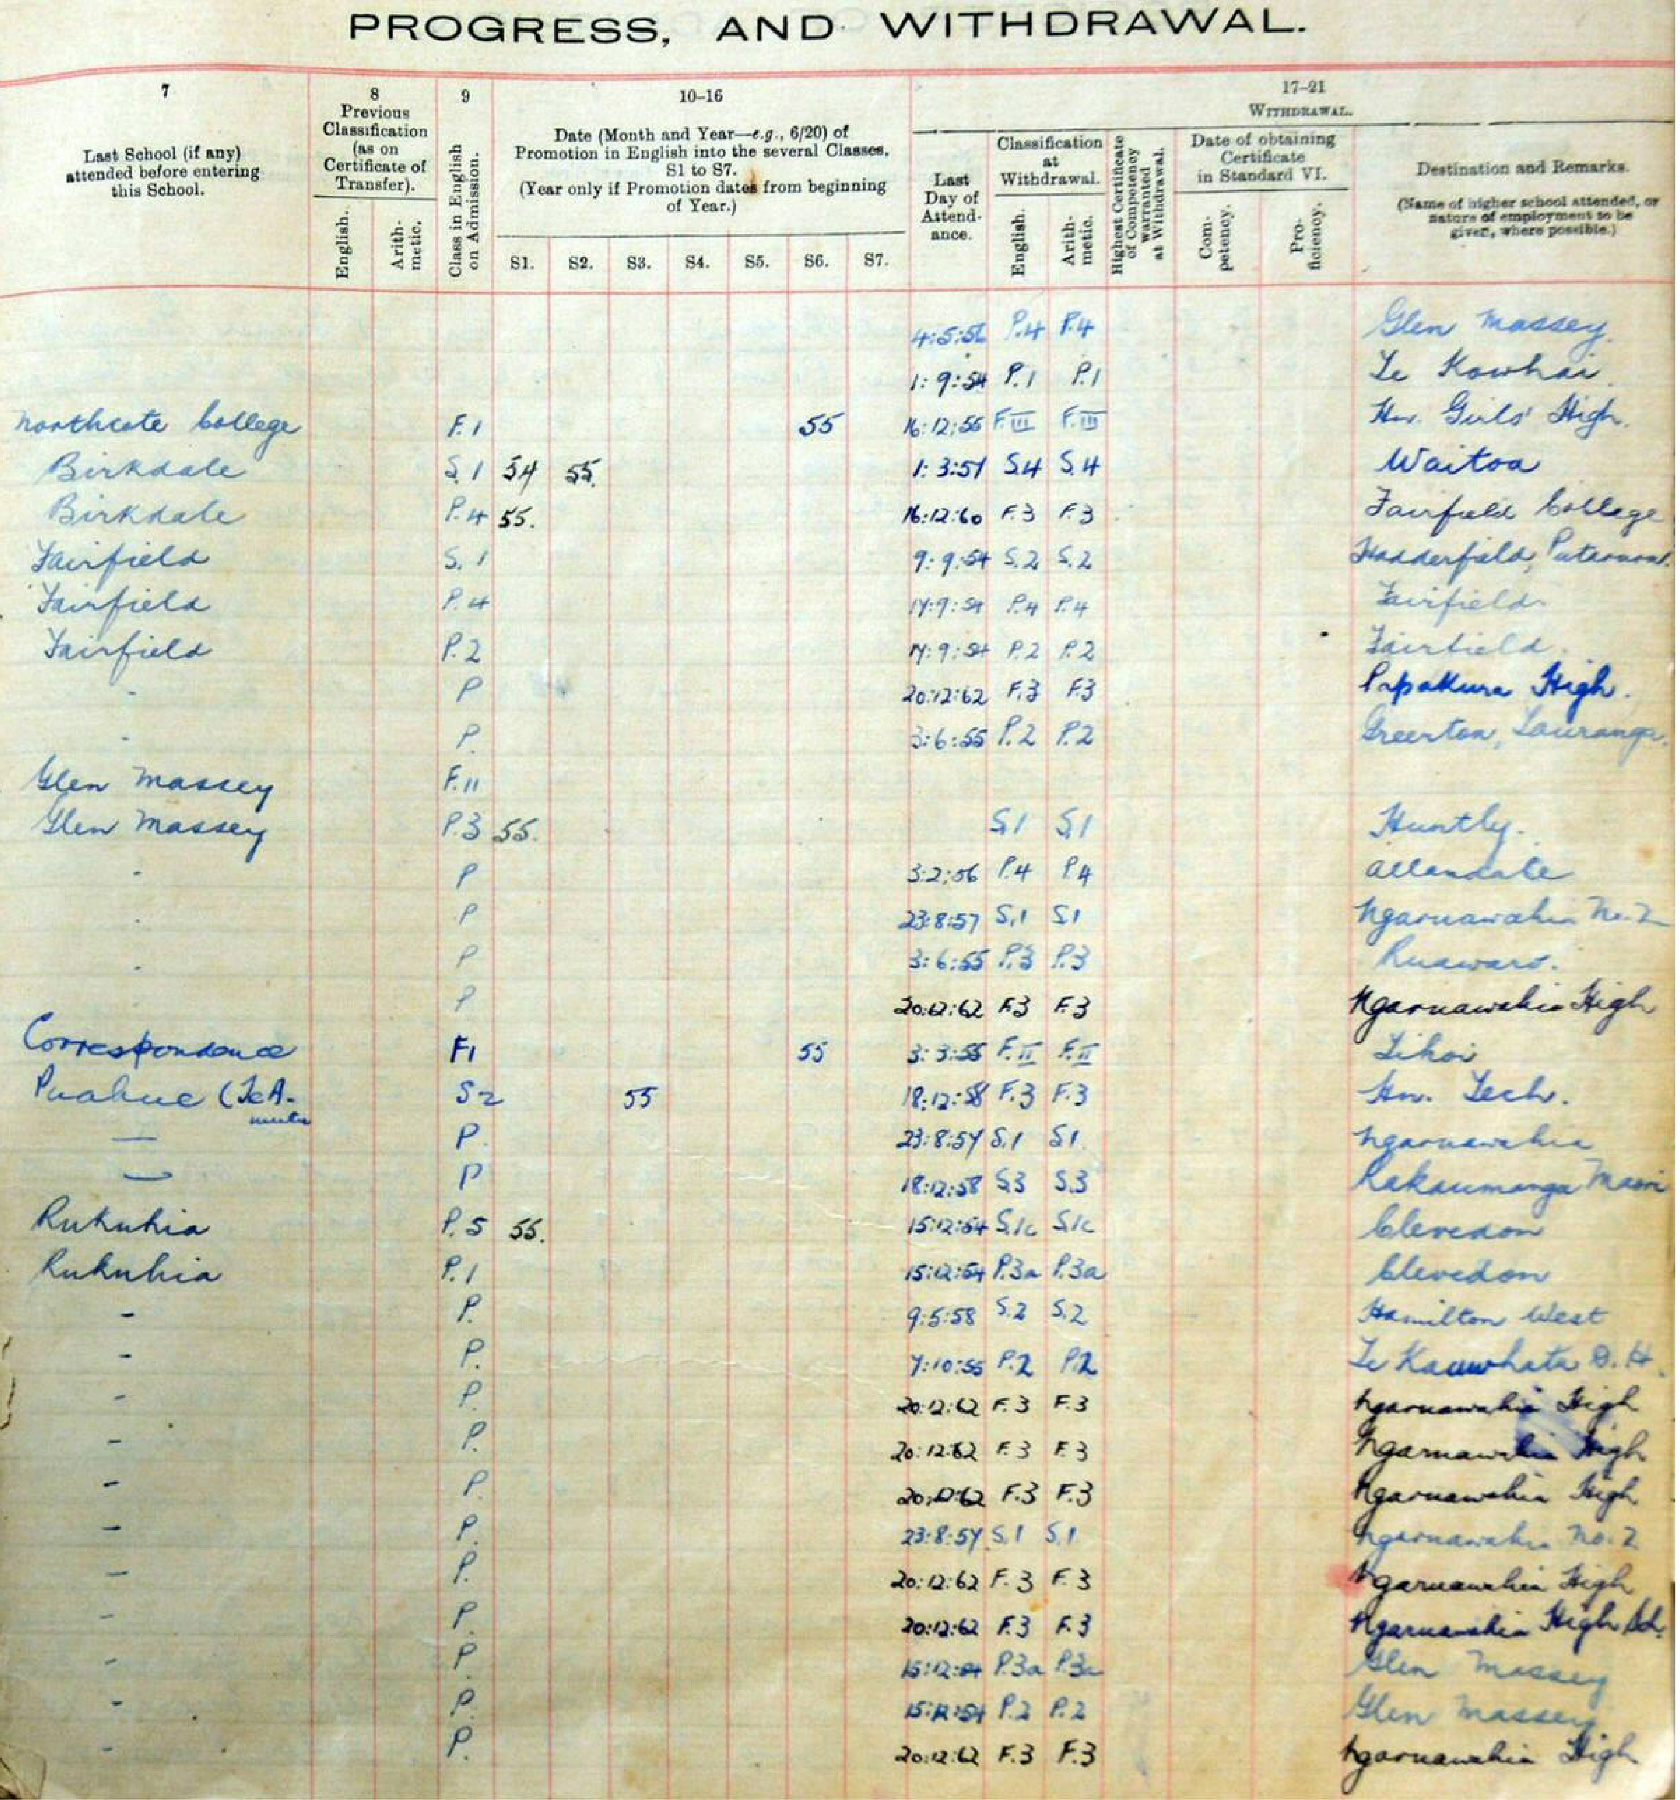 PROGRESS, AND WITHDRAWAL.
7 8 9 10-16 17-21
Last School (if any) attended before entering this School.
Previous Classification (as on Certificate of Transfer).
English. Arithmetic.
Class in English on Admission.
Date (Month and Year—e.g., 6/20) of Promotion in English into the several Classes, S1 to S7.
(Year only if Promotion dates from beginning of Year.)
S1. S2. S3. S4. S5. S6. S7.
WITHDRAWAL.
Last Day of Attendance.
Classification at Withdrawal.
English. Arithmetic.
Highest Certificate of Competency warranted at Withdrawal.
Date of obtaining Certificate in Standard VI.
Competency. Proficiency.
Destination and Remarks.
(Name of higher school attended, or nature of employment to be given, where possible.)
4:5:56 P.4 P.4 Glen Massey.
1:9:54 P.1 P.1 Te Kowhai.
Northcote College F.1 55 16:12:55 F.III F.III Hn. Girls' High.
Birkdale S.1 54 55. 1:3:57 S.4 S.4 Waitoa
Birkdale P.4 55. 16:12:60 F.3 F.3 Fairfield College
Fairfield S.1 9:9:54 S.2 S.2
Fairfield P.4 17:9:54 P.4 P.4 Fairfield
Fairfield P.2 17:9:54 P.2 P.2 Fairfield.
- P 20:12:62 F.3 F.3 Papakura High.
- P. 3:6:55 P.2 P.2 Greerton, Tauranga.
Glen Massey F.11
Glen Massey P.3 55. S.1 S.1 Huntly.
- P 3:2:56 P.4 P.4 Allandale
- P 23:8:57 S.1 S.1 Ngaruawahia No. 2
- P 3:6:55 P.3 P.3 Ruawaro.
P 20:12:62 F.3 F.3 Ngaruawahia High
Correspondence F1 55 3:3:55 F.II F.II Tihoi
Puahue (Te A- S2 55 18:12:58 F.3 F.3 Hn. Tech.
mutu
— P. 23:8:57 S.1 S1. Ngaruawahia
— P 18:12:58 S.3 S.3 Rakaumanga Maori
Rukuhia P.5 55. 15:12:54 S.1c S.1c Clevedon
Rukuhia P.1 15:12:54 P.3a P.3a Clevedon
- P. 9:5:58 S.2 S.2 Hamilton West
- P. 7:10:55 P.2 P.2 Te Kauwhata D.H.
- P. 20:12:62 F.3 F.3 Ngaruawahia High
- P. 20:12:62 F.3 F.3 Ngaruawahia High
- P. 20:12:62 F.3 F.3 Ngaruawahia High
- P. 23:8:57 S.1 S.1 Ngaruawahia No. 2
- P. 20:12:62 F.3 F.3 Ngaruawahia High
- P. 20:12:62 F.3 F.3 Ngaruawahia High Sch.
- P. 15:12:54 P.3a P.3a Glen Massey
- P. 15:12:54 P.2 P.2 Glen Massey
- P. 20:12:62 F.3 F.3 Ngaruawahia High